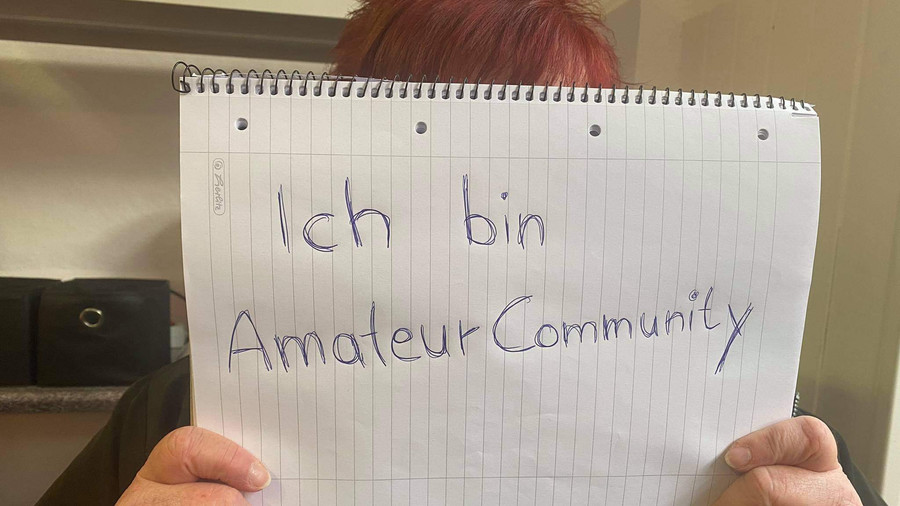 Ich bin
Amateur Community